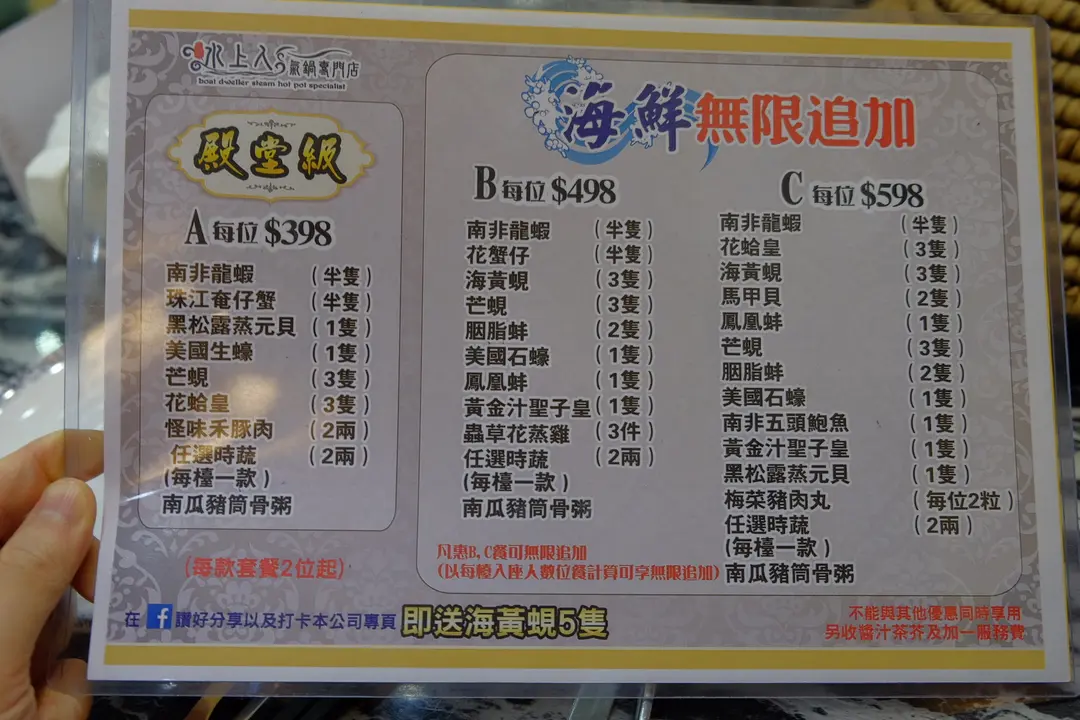 水上人氣鍋專門店
boat dweller steam hot pot specialist
殿堂級
A 每位 $398
南非龍蝦 (半隻)
珠江奄仔蟹 (半隻)
黑松露蒸元貝 (1隻)
美國生蠔 (1隻)
芒蜆 (3隻)
花蛤皇 (3隻)
怪味禾豚肉 (2兩)
任選時蔬 (2兩)
(每檯一款)
南瓜豬筒骨粥
(每款套餐2位起)
海鮮無限追加
B 每位 $498
南非龍蝦 (半隻)
花蟹仔 (半隻)
海黃蜆 (3隻)
芒蜆 (3隻)
胭脂蚌 (2隻)
美國石蠔 (1隻)
鳳凰蚌 (1隻)
黃金汁聖子皇 (1隻)
蟲草花蒸雞 (3件)
任選時蔬 (2兩)
(每檯一款)
南瓜豬筒骨粥
C 每位 $598
南非龍蝦 (半隻)
花蛤皇 (3隻)
海黃蜆 (3隻)
馬甲貝 (2隻)
鳳凰蚌 (1隻)
芒蜆 (3隻)
胭脂蚌 (2隻)
美國石蠔 (1隻)
南非五頭鮑魚 (1隻)
黃金汁聖子皇 (1隻)
黑松露蒸元貝 (1隻)
梅菜豬肉丸 (每位2粒)
任選時蔬 (2兩)
(每檯一款)
南瓜豬筒骨粥
凡惠B,C餐可無限追加
(以每檯入座人數位餐計算可享無限追加)
在 f 讚好分享以及打卡本公司專頁 即送海黃蜆5隻
不能與其他優惠同時享用
另收醬汁茶芥及加一服務費